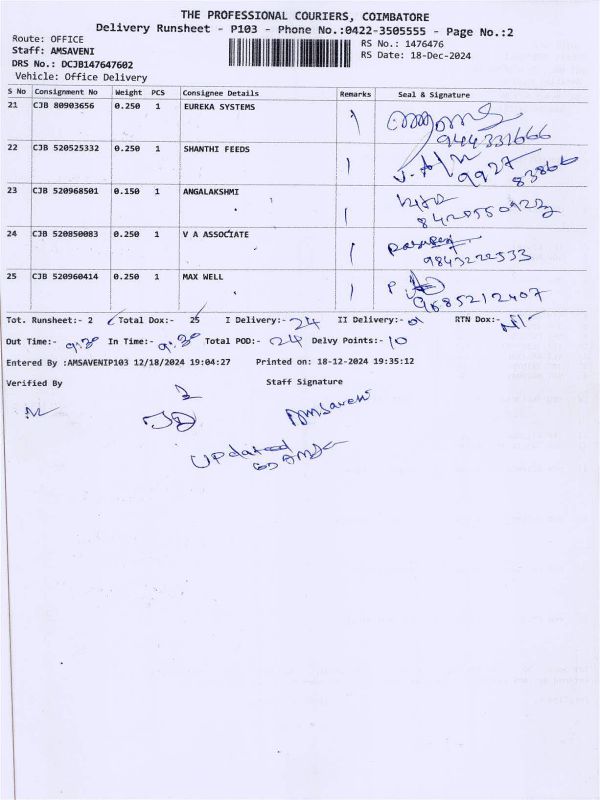 THE PROFESSIONAL COURIERS, COIMBATORE
Delivery Runsheet - P103 - Phone No.:0422-3505555 - Page No.:2
Route: OFFICE
RS No.: 1476476
Staff: AMSAVENI
RS Date: 18-Dec-2024
DRS No.: DCJB147647602
Vehicle: Office Delivery
S No Consignment No Weight PCS Consignee Details Remarks Seal & Signature
21 CJB 80903656 0.250 1 EUREKA SYSTEMS
9444331666
22 CJB 520525332 0.250 1 SHANTHI FEEDS
9927
83866
23 CJB 520968501 0.150 1 ANGALAKSHMI
24 CJB 520850083 0.250 1 V A ASSOCIATE
9843222533
25 CJB 520960414 0.250 1 MAX WELL
9685212407
Tot. Runsheet:- 2 Total Dox:- 25 I Delivery:- 24 II Delivery:- 01 RTN Dox:- Nil
Out Time:- 9:30 In Time:- 9:30 Total POD:- 24 Delvy Points:- 10
Entered By :AMSAVENIP103 12/18/2024 19:04:27 Printed on: 18-12-2024 19:35:12
Verified By Staff Signature
AMSaveni
Updated